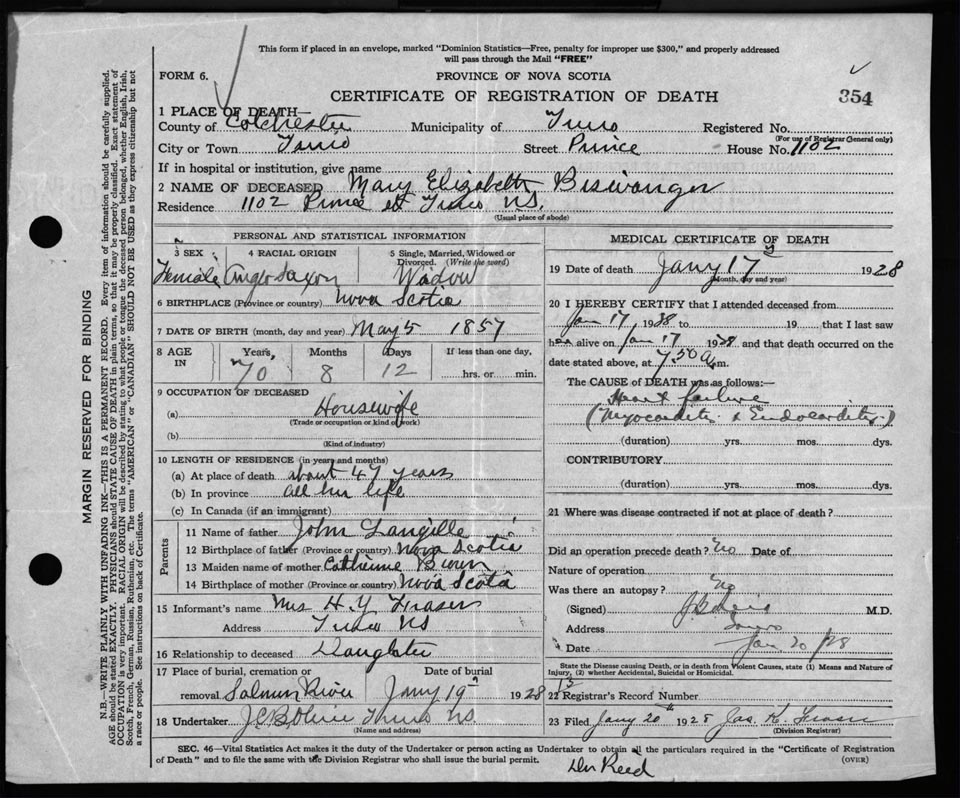 This form if placed in an envelope, marked "Dominion Statistics—Free, penalty for improper use $300," and properly addressed
will pass through the Mail "FREE"
FORM 6.
PROVINCE OF NOVA SCOTIA
CERTIFICATE OF REGISTRATION OF DEATH
354
1 PLACE OF DEATH—
County of Colchester Municipality of Truro Registered No.
(For use of Registrar General only)
City or Town Truro Street Prince House No. 1102
If in hospital or institution, give name
2 NAME OF DECEASED Mary Elizabeth Biswanger
Residence 1102 Prince st Truro N.S.
(Usual place of abode)
PERSONAL AND STATISTICAL INFORMATION
3 SEX 4 RACIAL ORIGIN 5 Single, Married, Widowed or
Divorced. (Write the word)
Female Anglo Saxon Widow
6 BIRTHPLACE (Province or country) Nova Scotia
7 DATE OF BIRTH (month, day and year) May 5 1857
8 AGE IN Years, Months Days If less than one day,
70 8 12 hrs. or min.
9 OCCUPATION OF DECEASED
(a) Housewife
(Trade or occupation or kind of work)
(b)
(Kind of industry)
10 LENGTH OF RESIDENCE (in years and months)
(a) At place of death about 47 years
(b) In province all her life
(c) In Canada (if an immigrant)
Parents
11 Name of father John Langille
12 Birthplace of father (Province or country) Nova Scotia
13 Maiden name of mother Catherine
14 Birthplace of mother (Province or country) Nova Scotia
15 Informant's name Mrs H. Y. Fraser
Address Truro NS
16 Relationship to deceased Daughter
17 Place of burial, cremation or Date of burial
removal Salmon River Jany 19th 1928
18 Undertaker Truro NS.
(Name and address)
MEDICAL CERTIFICATE OF DEATH
19 Date of death Jany 17 1928
(Month, day and year)
20 I HEREBY CERTIFY that I attended deceased from
Jan 17, 1928 to 19 that I last saw
her alive on Jan 17 1928 and that death occurred on the
date stated above, at 7.50 a.m.
The CAUSE of DEATH was as follows:—
Heart failure
(Myocarditis & Endocarditis.)
(duration) yrs. mos. dys.
CONTRIBUTORY
(duration) yrs. mos. dys.
21 Where was disease contracted if not at place of death?
Did an operation precede death? No Date of
Nature of operation
Was there an autopsy? No
(Signed) M.D.
Address Truro
Date Jan 20/28
State the Disease causing Death, or in death from Violent Causes, state (1) Means and Nature of
Injury, (2) whether Accidental, Suicidal or Homicidal.
22 Registrar's Record Number 13
23 Filed Jany 20th 1928 Jas. K. Fraser
(Division Registrar)
SEC. 46—Vital Statistics Act makes it the duty of the Undertaker or person acting as Undertaker to obtain all the particulars required in the "Certificate of Registration
of Death" and to file the same with the Division Registrar who shall issue the burial permit.
(OVER)
Dr Reed
MARGIN RESERVED FOR BINDING
N.B.—WRITE PLAINLY WITH UNFADING INK—THIS IS A PERMANENT RECORD. Every item of information should be carefully supplied.
AGE should be stated EXACTLY. PHYSICIANS should STATE CAUSE OF DEATH in plain terms, so that it may be properly classified. Exact statement of
OCCUPATION is very important. RACIAL ORIGIN will be described by stating to what people or tongue the deceased person belonged, whether English, Irish,
Scotch, French, German, Russian, Ruthenian, etc. The terms "AMERICAN" or "CANADIAN" SHOULD NOT BE USED as they express citizenship but not
a race or people. See instructions on back of Certificate.